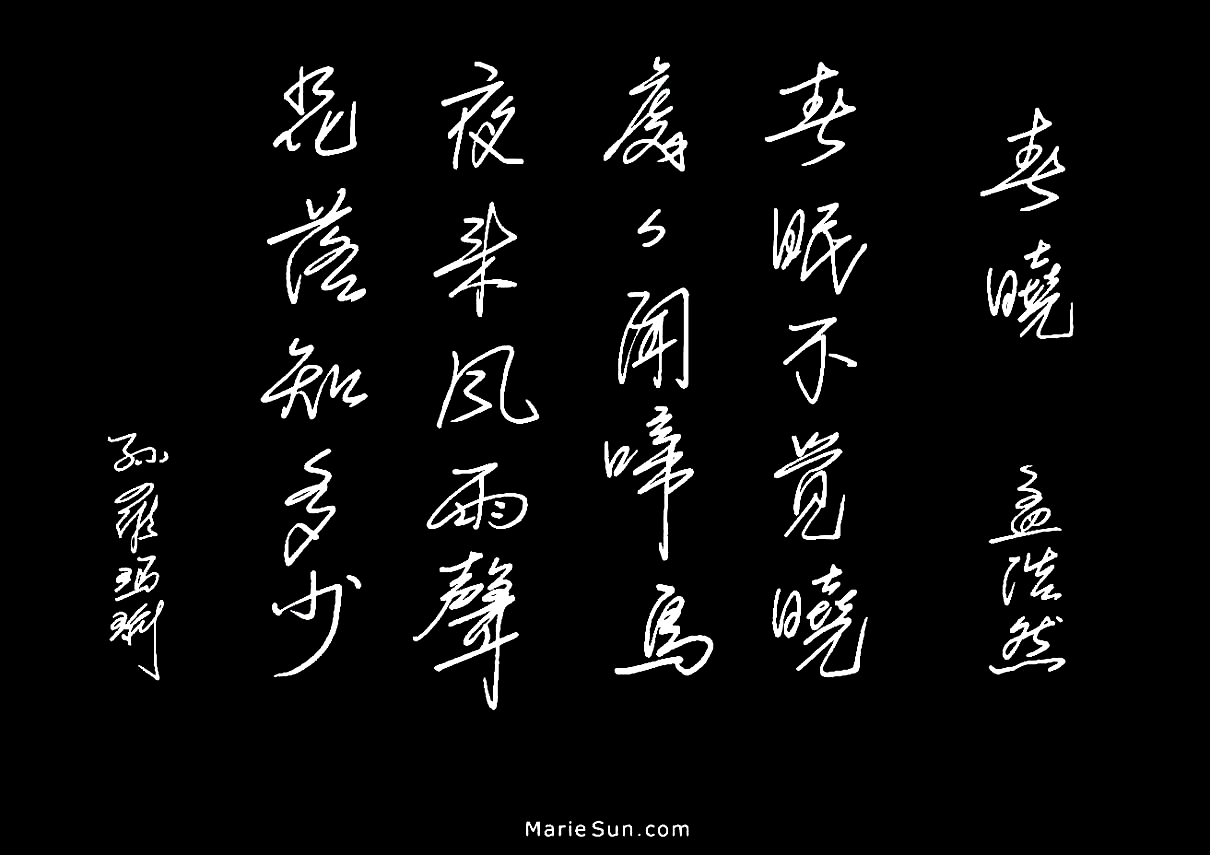 春曉 孟浩然
春眠不覚曉
處々聞啼鳥
夜来風雨聲
花落知多少
孫羅瑪琍
MarieSun.com